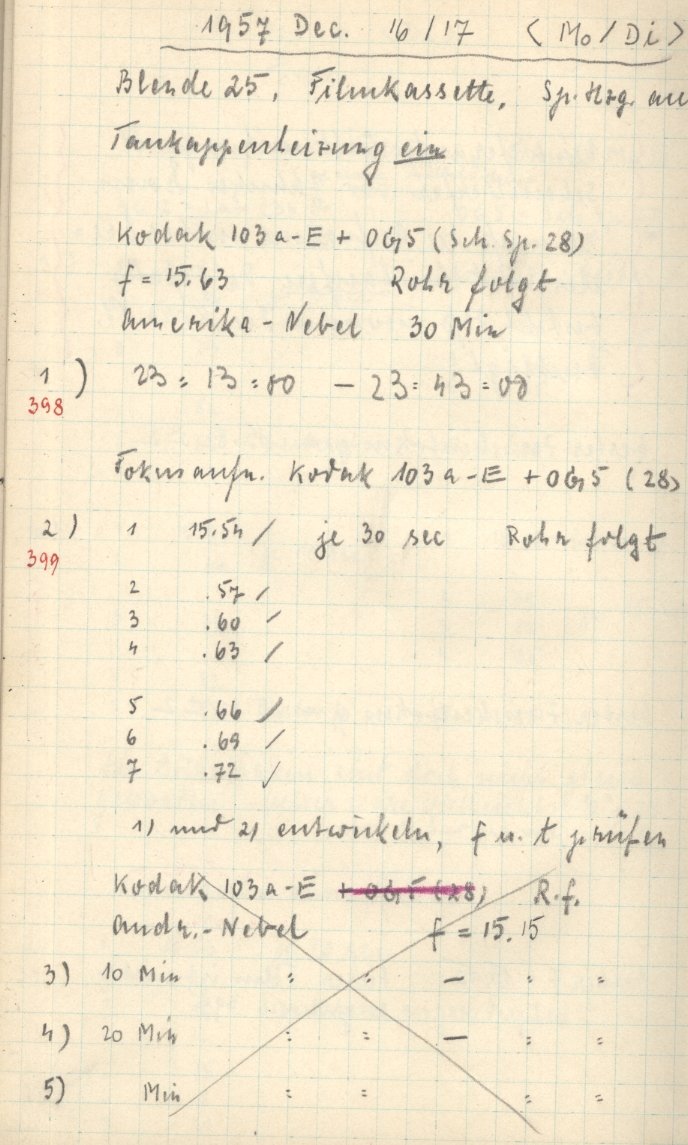 1957 Dec. 16/17 < Mo/Di >
Blende 25, Filmkassette, Sp. Hzg. an
Taukappenheizung ein
Kodak 103a-E + OG5 (Sch. Sp. 28)
f = 15.63 Rohr folgt
Amerika-Nebel 30 Min
1) 23:13:00 – 23:43:00
398
Fokusaufn. Kodak 103a-E + OG5 (28)
2) 1 15.54 / je 30 sec Rohr folgt
399
2 .57 /
3 .60 /
4 .63 /
5 .66 /
6 .69 /
7 .72 /
1) und 2) entwickeln, f u. t prüfen
Kodak 103a-E + OG5 (28) R.f.
Andr.-Nebel f = 15.15
3) 10 Min : : – : :
4) 20 Min : : – : :
5) Min : : : :